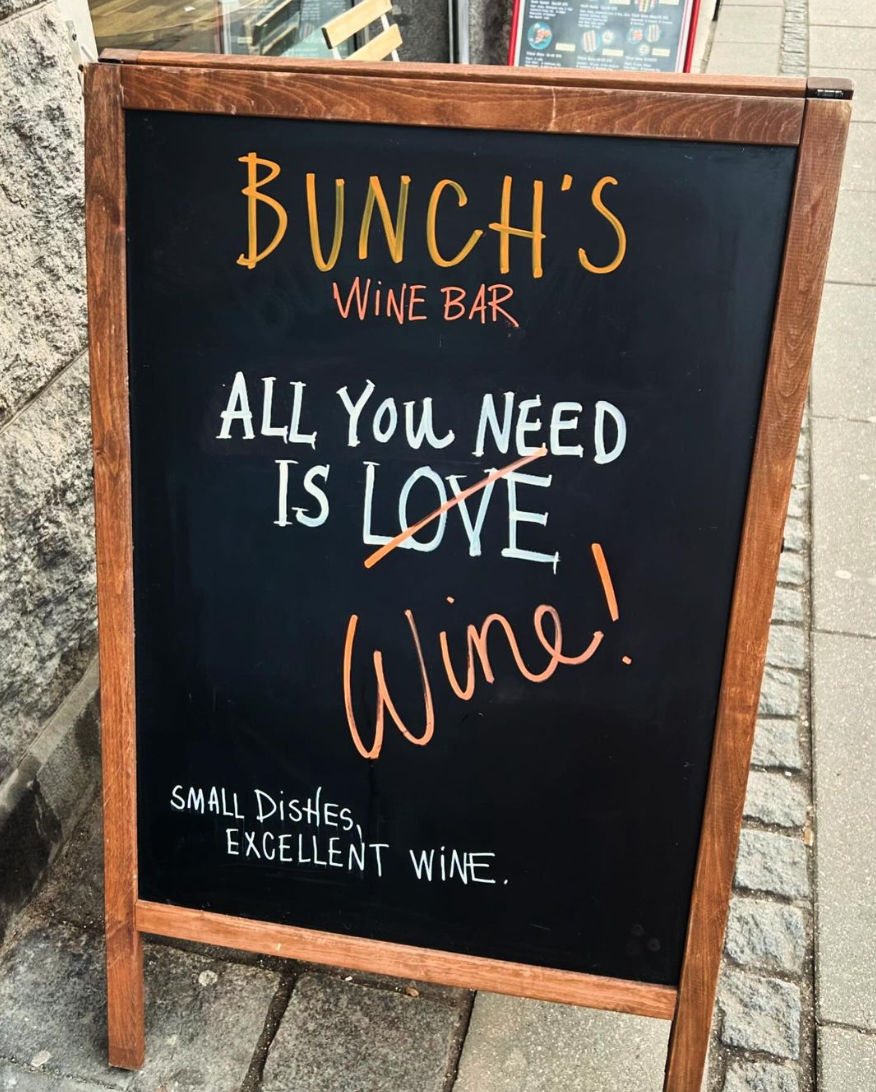 BUNCH'S
WiNE BAR
ALL YOU NEED
IS LOVE
Wine!
SMALL DiSHES,
EXCELLENT WiNE.